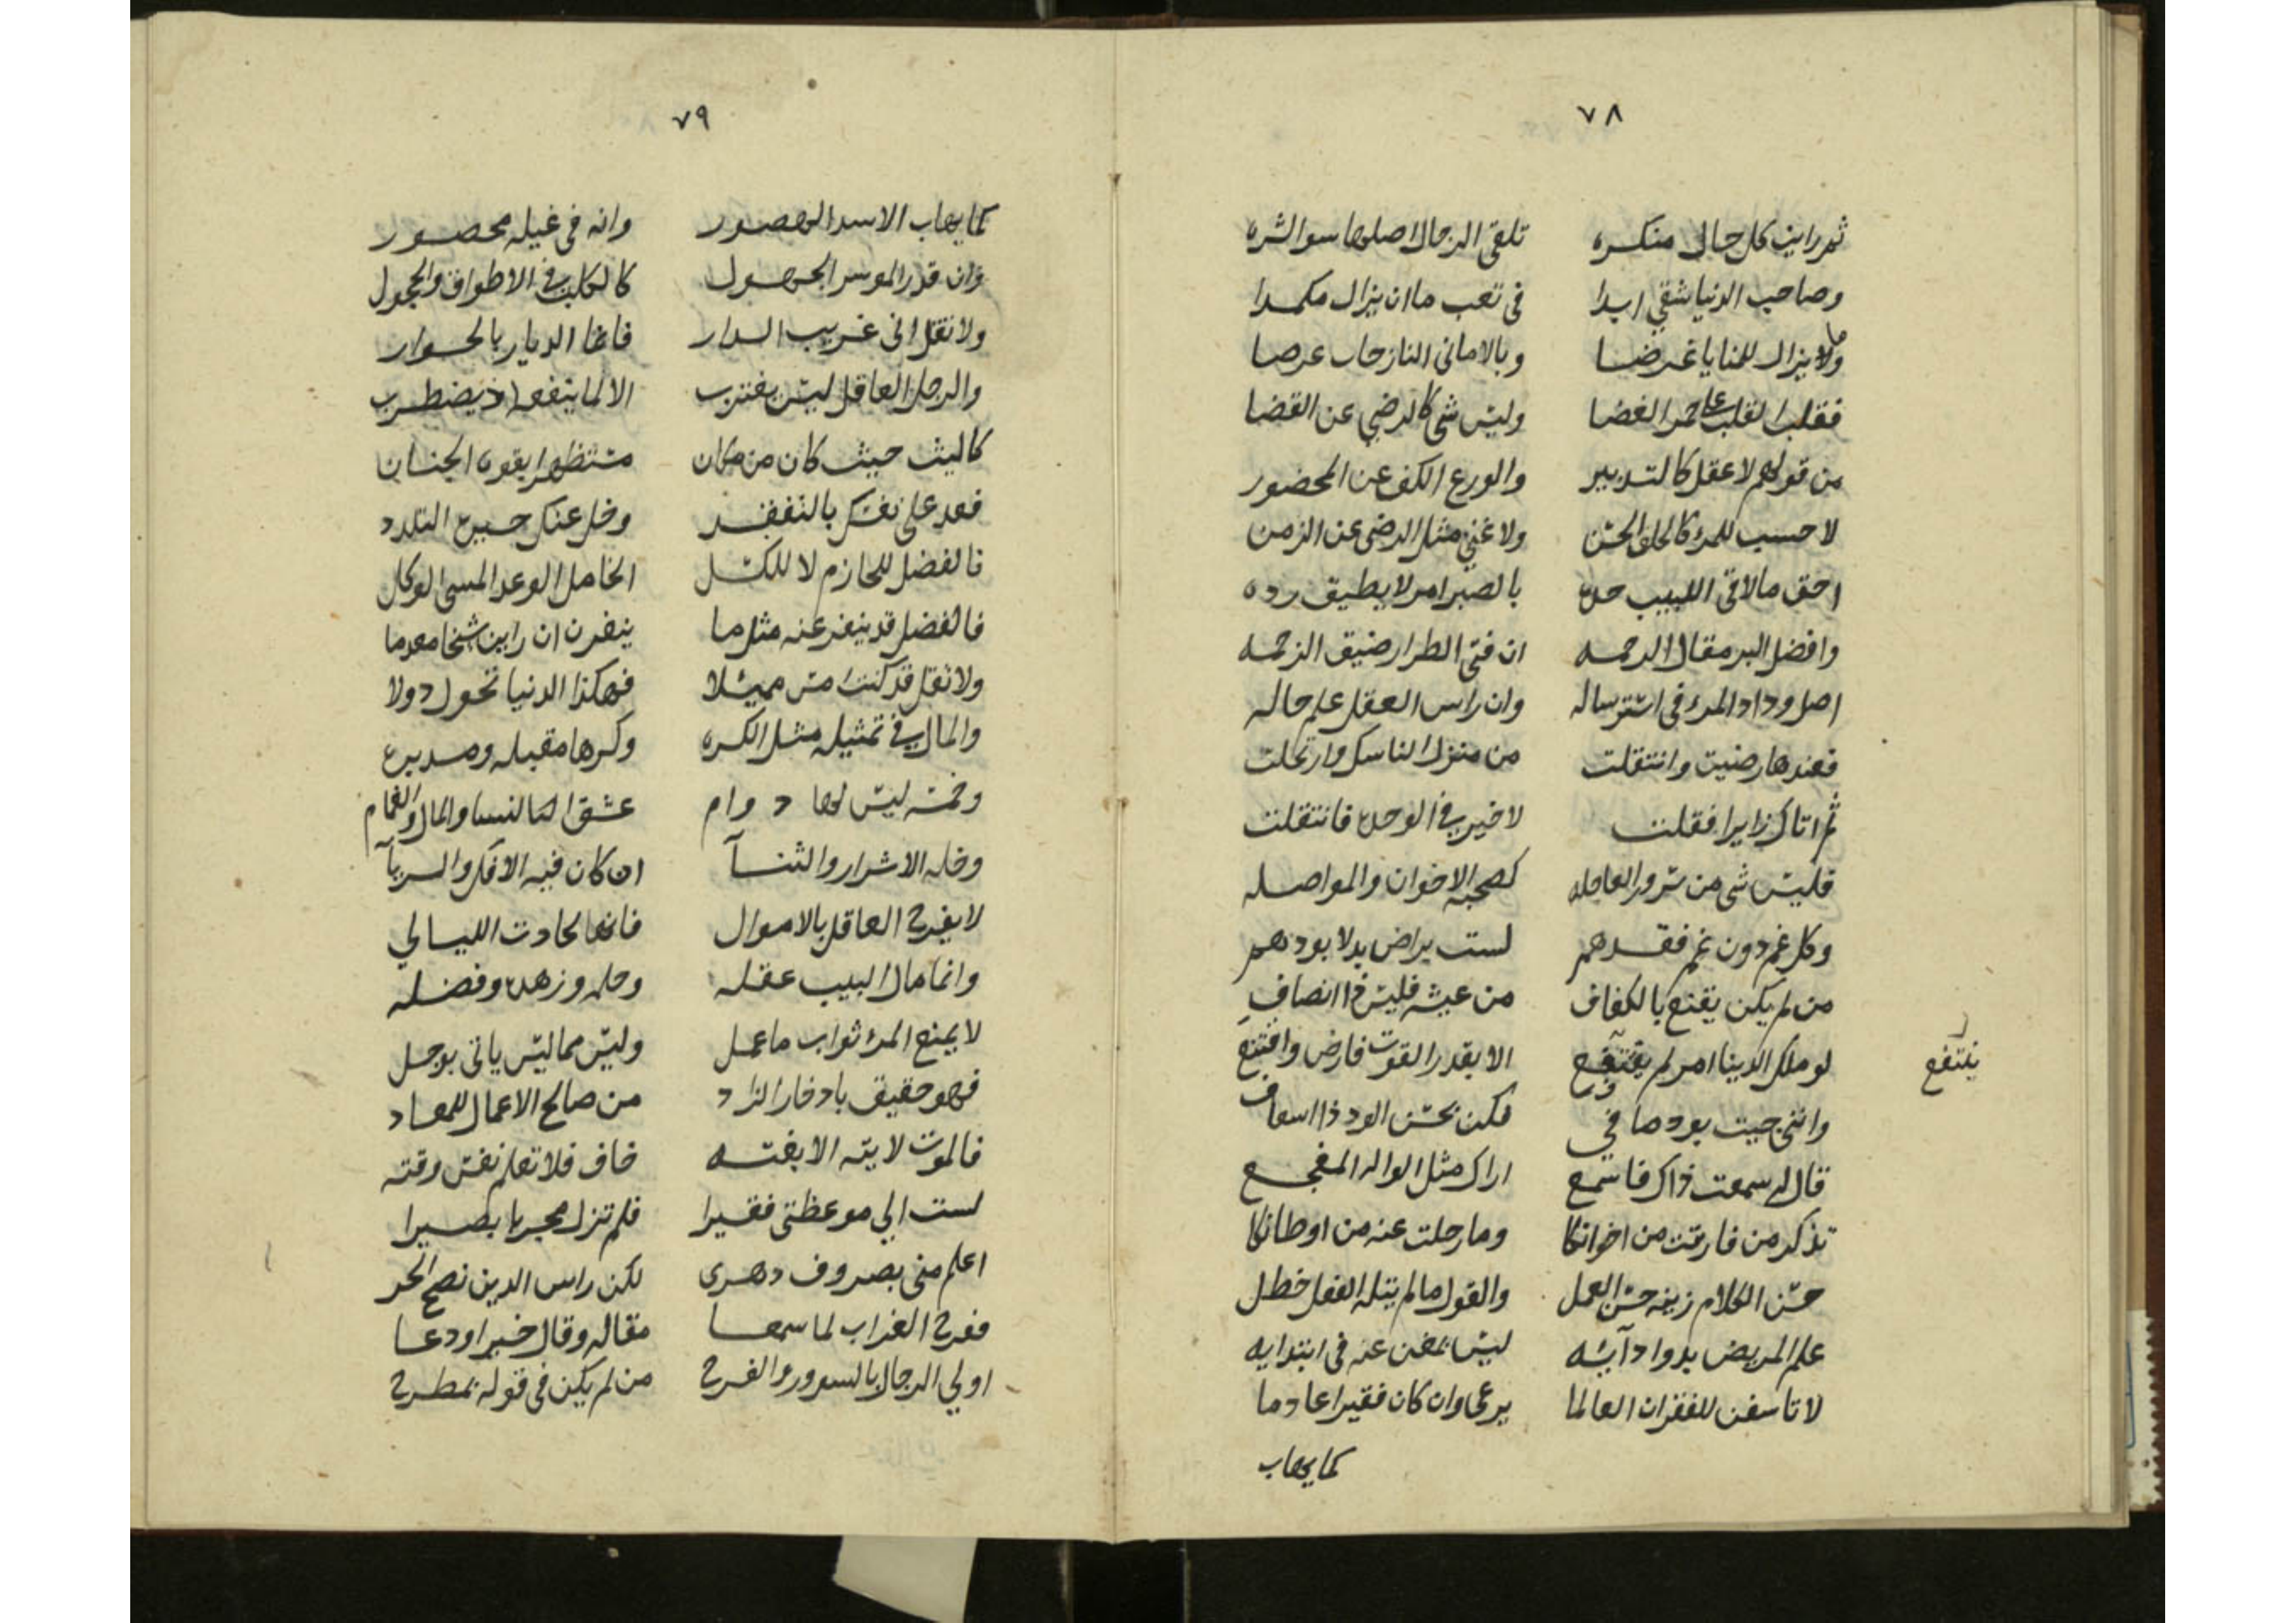 ٧٨
ثم رايت كل حال منكره تلقى الرجال اصلها سو الشره
وصاحب الدنيا شقي ابدا في تعب ما ان يزال مكمدا
ولا يزال للمنايا غرضا وبالاماني النازحات عرضا
فقلب القلب على جمر الغضا وليس شي كالرضي عن القضا
من قولهم لا عقل كالتدبير والورع الكف عن المحضور
لا حسب للمرء كالخلق الحسن ولا غني مثل الرضى عن الزمن
احق ما لاقى اللبيب حده بالصبر امر لا يطيق رده
وافضل البر مقال الرحمه ان فتى الطرار ضيق الزحمه
اصل وداد المرء في استرساله وان راس العقل علم حاله
فعندها رضيت وانتقلت من منزل الناسك وارتحلت
ثم اتاك زايرا فقلت لا خير في الوحده فانتقلت
فليس شي من سرور العاجله كصحبة الاخوان والمواصله
وكل غم دون غم فقدهم لست براض بدلا بودهم
من لم يكن يقنع بالكفاف من عيشه فليس ذا انصاف
لو ملك الدينا امر لم يقتنع الا بقدر القوت فارض واقتنع
ينتفع
وانني جيت بود صافي فكن بحسن الود ذا اسعاف
قال لي سمعت ذاك فاسمع اراك مثل الواله المفجع
تذكر من فارقت من اخوانكا وما رحلت عنه من اوطانكا
حسن الكلام زينه حسن العمل والقول ما لم يتله الفعل خطل
علم المريض بدوا دآيه ليس بمغن عنه في ابتدايه
لا تاسفن للفقر ان العالما يرعى وان كان فقيرا عادما
كما يهاب
٧٩
كما يهاب الاسد الهصور وانه في غيله محصور
وان قدر الموسر الجهول كالكلب في الاطواق والحجول
ولا تقل اني غريب الدار فانما الديار بالحوار
والرجل العاقل ليس يغترب الا لما ينفعه اذ يضطرب
كاليث حيث كان من مكان مستظهرا بقوة الجنان
فعد على نفسك بالتفقد وخل عنك حسن التلدد
فالفضل للحازم لا للكسل الخامل الوعد المسي الوكل
فالفضل قد ينفر عنه مثل ما ينفرن ان راين شخا معدما
ولا تقل قد كنت امس مميلا فهكذا الدنيا تحول دولا
والمال في تمثيله مثل الكره وكرها مقبله ومدبره
وخمسة ليس لها دوام عشق النسا والمال والغمام
وخله الاشرار والثنآ ان كان فيه الافك والريآ
لا يفرح العاقل بالاموال فانها لحادث الليالي
وانما مال البيب عقله وحلمه وزهده وفضله
لا يمنع المرء ثواب ما عمل وليس مما ليس ياتي بوجل
فهو حقيق بادخار الزاد من صالح الاعمال للمعاد
فالموت لايته الا بغته خاف فلا تعلم نفس وقته
لست الي موعظتي فقيرا فلم تزل مجربا بصيرا
اعلم مني بصروف دهرى لكن راس الدين نصح الحر
ففرح الغراب لما سمعا مقاله وقال خيرا ودعا
اولي الرجال بالسرور والفرح من لم يكن في قوله بمطرح